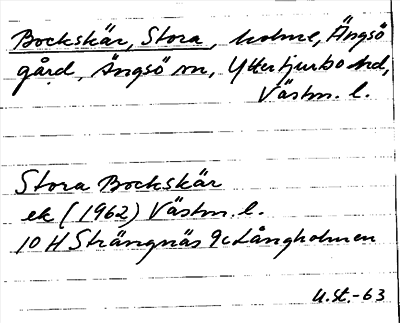 Bockskär, Stora, holme, Ängsö
gård, Ängsö sn, Yttertjurbo hd,
Västm. l.
Stora Bockskär
ek (1962) Västm. l.
10 H Strängnäs 9c Långholmen
U.st.-63